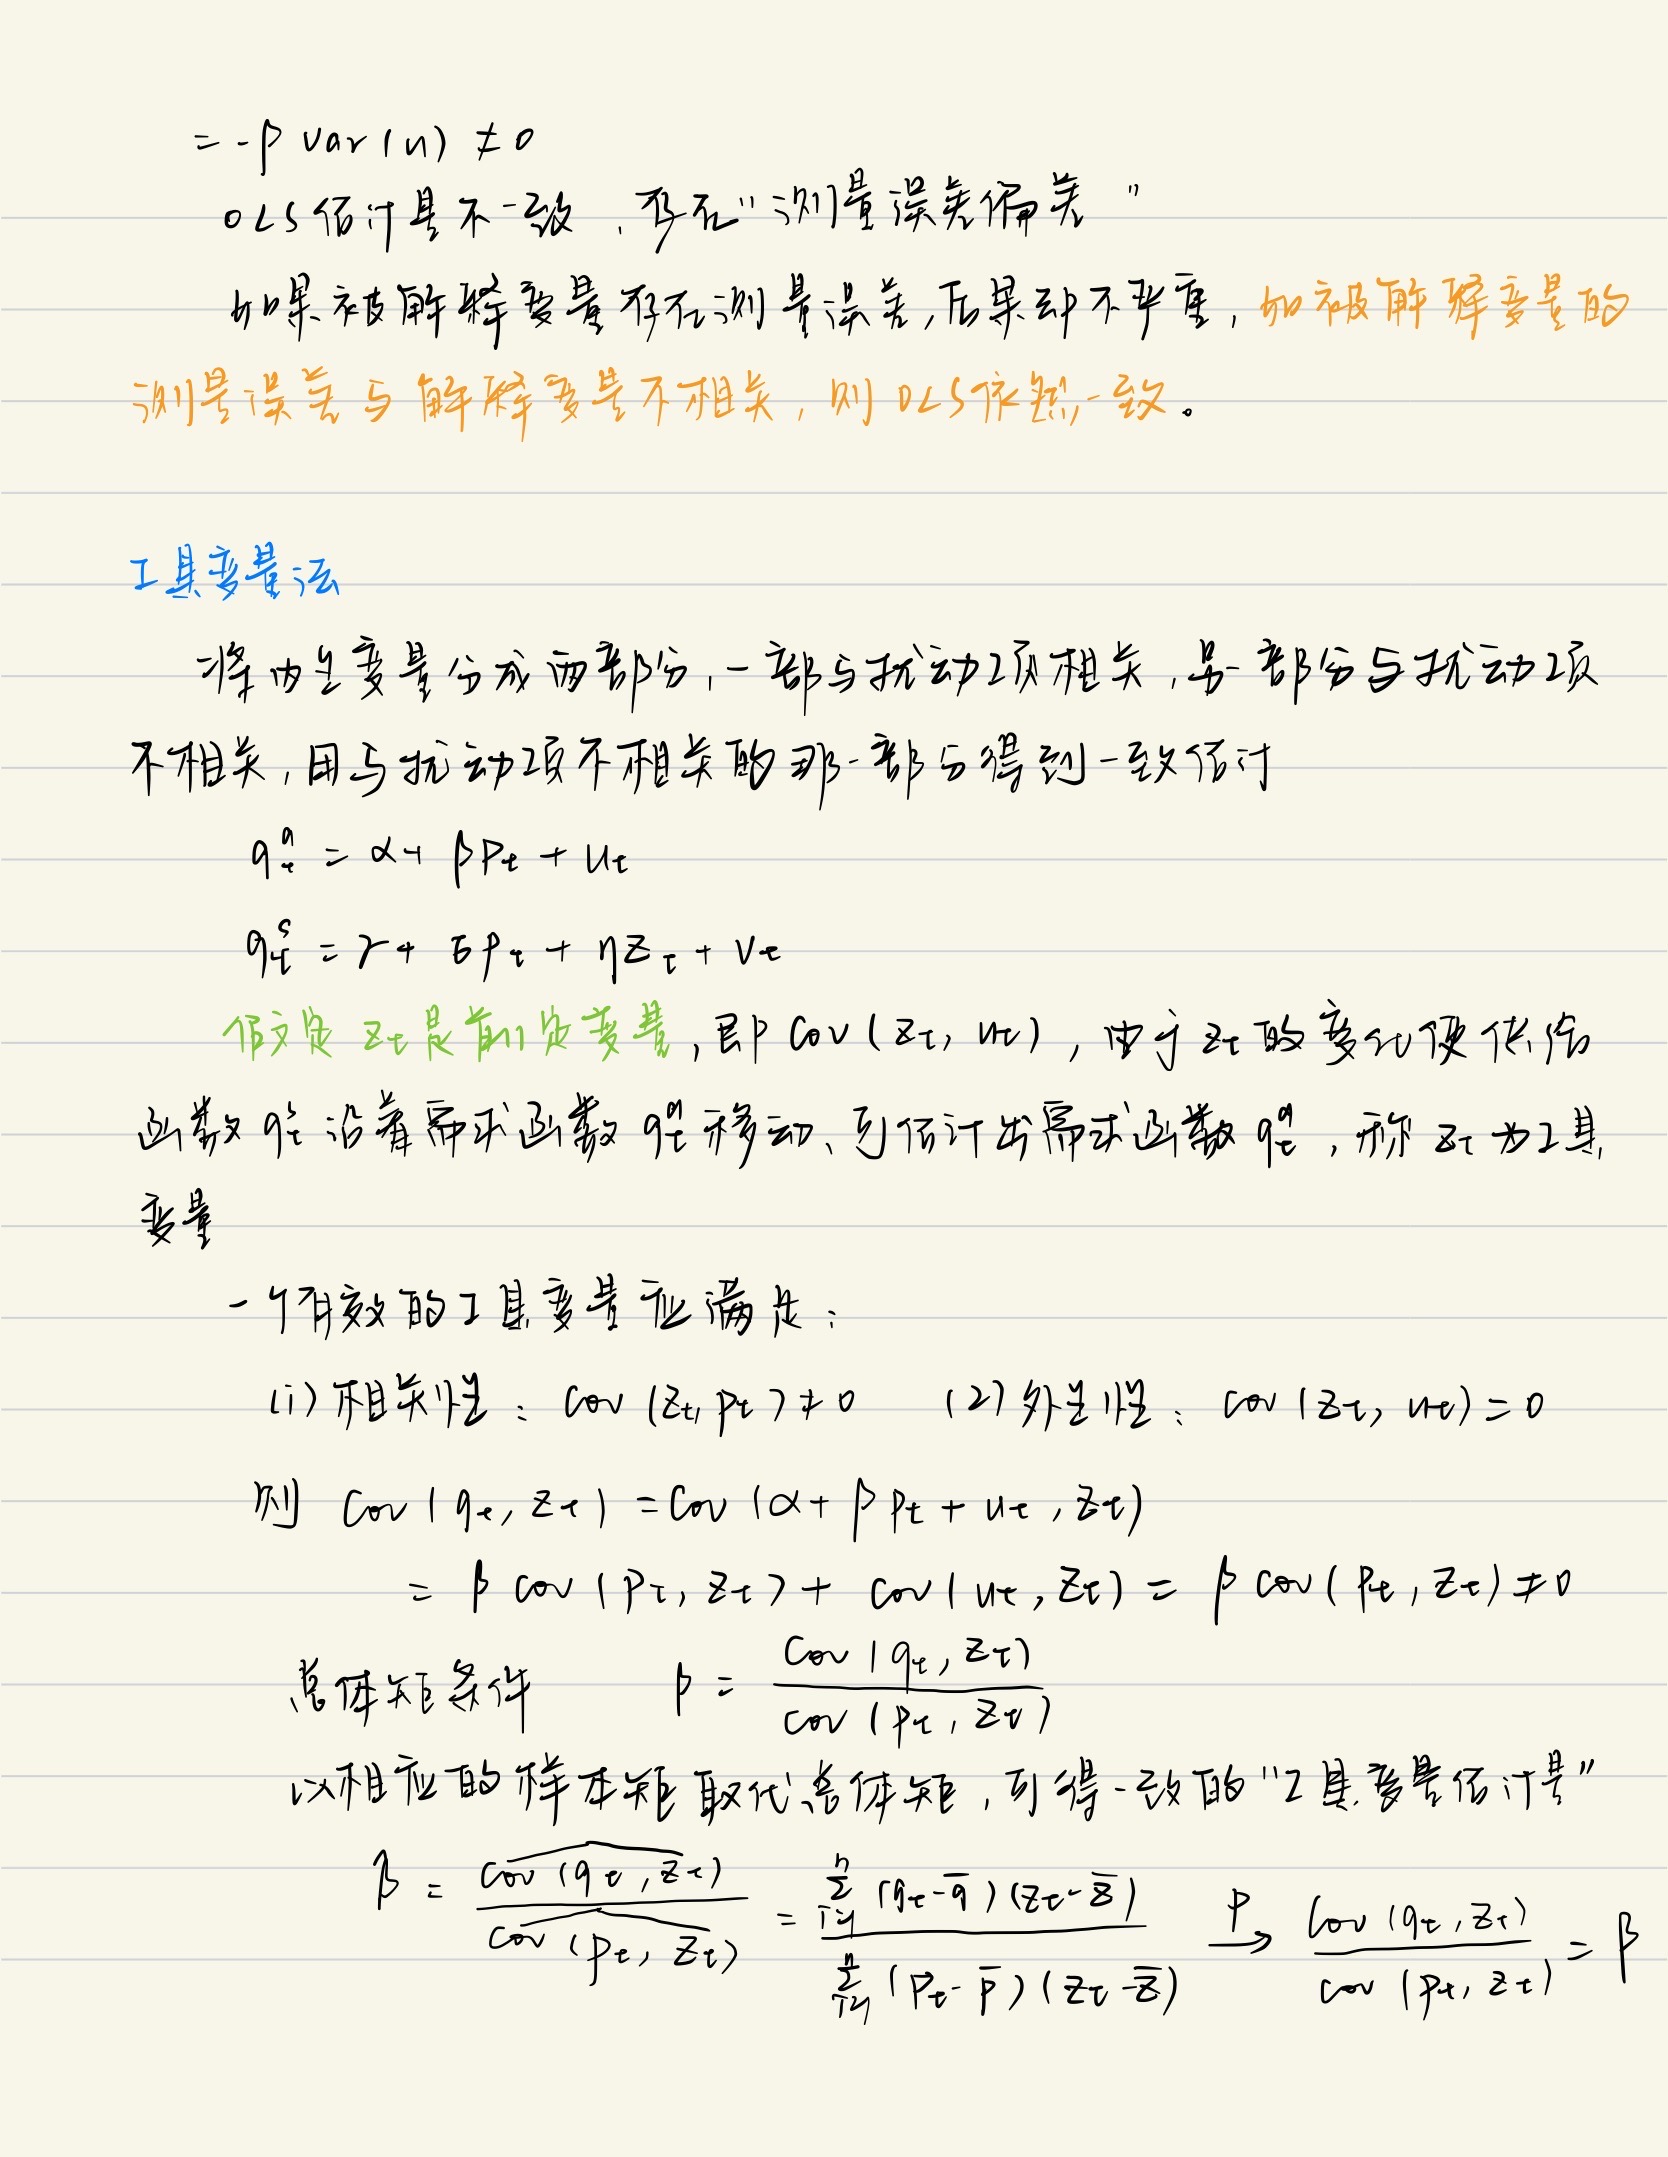 = -β var(u) ≠ 0
OLS估计是不一致，存在“测量误差偏差”
如果被解释变量存在测量误差，后果却不严重，如被解释变量的
测量误差与解释变量不相关，则OLS依然一致。
工具变量法
将内生变量分成两部分，一部与扰动项相关，另一部分与扰动项
不相关，用与扰动项不相关的那一部分得到一致估计
qₜᵈ = α + βPₜ + uₜ
qₜˢ = γ + δpₜ + ηzₜ + vₜ
假定zₜ是前定变量，即Cov(zₜ, uₜ)，由于zₜ的变化使供给
函数qₜˢ沿着需求函数qₜᵈ移动、可估计出需求函数qₜᵈ，称zₜ为工具
变量
一个有效的工具变量应满足：
(1)相关性：Cov(zₜ, pₜ) ≠ 0 (2)外生性：cov(zₜ, uₜ) = 0
则 Cov(qₜ, zₜ) = Cov(α + βpₜ + uₜ, zₜ)
= β cov(pₜ, zₜ) + cov(uₜ, zₜ) = β cov(pₜ, zₜ) ≠ 0
总体矩条件 β = Cov(qₜ, zₜ) / cov(pₜ, zₜ)
以相应的样本矩取代总体矩，可得一致的“工具变量估计量”
β = \widehat{Cov(qₜ, zₜ)} / \widehat{Cov(pₜ, zₜ)} = \sum_{i=1}^{n}(qₜ-q̄)(zₜ-z̄) / \sum_{i=1}^{n}(pₜ-p̄)(zₜ-z̄) \xrightarrow{P} Cov(qₜ, zₜ) / cov(pₜ, zₜ) = β